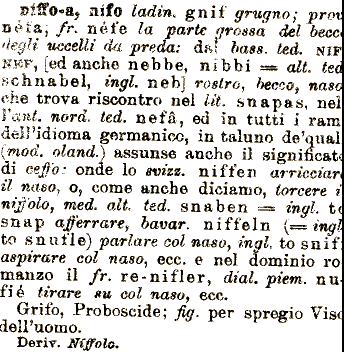 niffo-a, nifo ladin. gnif grugno; prov
néfa, fr. nèfe la parte grossa del becc
degli uccelli da preda: dal bass. ted. NIF
NEF, [ed anche nebbe, nibbi = alt. ted
schnabel, ingl. neb] rostro, becco, naso
che trova riscontro nel lit. snapas, nel
l'ant. nord. ted. nefâ, ed in tutti i ram
dell'idioma germanico, in taluno de'qual
(mod. oland.) assunse anche il significato
di ceffo: onde lo svizz. niffen arricciare
il naso, o, come anche diciamo, torcere i
niffolo, med. alt. ted. snaben = ingl. to
snap afferrare, bavar. niffeln (= ingl
to snufle) parlare col naso, ingl. to snif
aspirare col naso, ecc. e nel dominio ro-
manzo il fr. re-nifler, dial. piem. nu-
fié tirare su col naso, ecc.
Grifo, Proboscide; fig. per spregio Viso
dell'uomo.
Deriv. Niffolo.